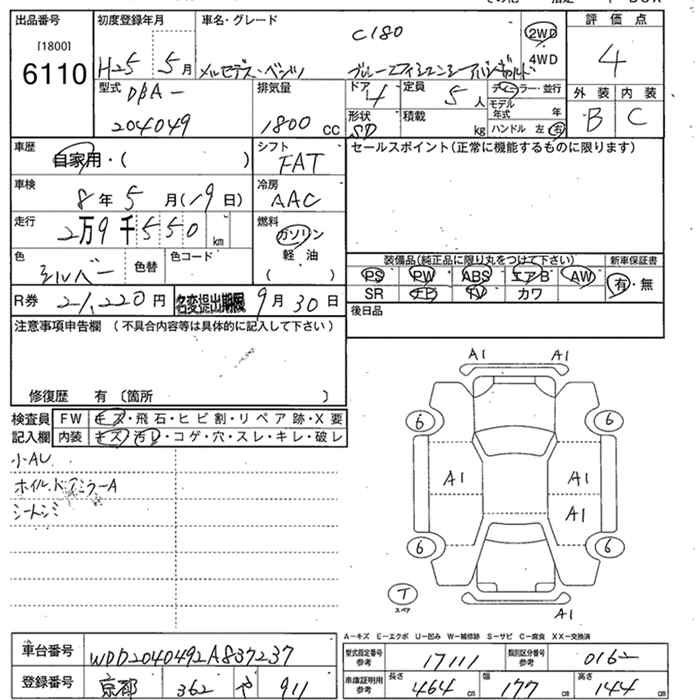 出品番号 初度登録年月 車名・グレード 評価点
[1800] C180 2WD
6110 H25 5月 メルセデス・ベンツ ブルーエフィシェンシーアバンギャルド 4WD 4
型式 排気量 ドア 定員 ディーラー・並行 外装 内装
DBA- 4 5人 モデル年式 年 B C
204049 1800cc 形状 SD 積載 kg ハンドル 左 右
車歴 シフト セールスポイント(正常に機能するものに限ります)
自家用・( ) FAT
車検 冷房
8年5月(19日) AAC
走行 燃料
2万9千550km ガソリン
色 色替 色コード 軽油 装備品(純正品に限り丸をつけて下さい) 新車保証書
シルバー ( ) PS PW ABS エアB AW 有・無
R券 21,220円 名変提出期限 9月30日 SR カワ
注意事項申告欄 (不具合内容等は具体的に記入して下さい) 後日品
修復歴 有 〔箇所 〕
検査員 FW キズ・飛石・ヒビ割・リペア跡・X要
記入欄 内装 キズ・汚レ・コゲ・穴・スレ・キレ・破レ
小AU
シートシミ
A1 A1
6 6
A1 A1
A1
6 6
T
スペア
A1
A-キズ E-エクボ U-凹み W-補修跡 S-サビ C-腐食 XX-交換済
車台番号 WDD2040492A837237 型式指定番号 参考 17111 類別区分番号 参考 0162
登録番号 京都 362 911 車庫証明用 参考 長さ 464cm 幅 177cm 高さ 144cm